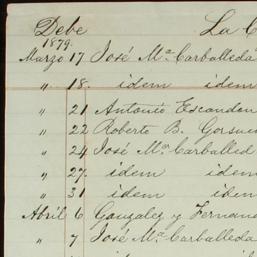 Debe La C
1879.
Marzo 17 José Mª Carballeda
" 18. idem idem
" 21 Antonio Escandon
" 22 Roberto B. Gorsuc
" 24 José Mª Carballed
" 27. idem idem
" 31 idem idem
Abril 6 Gonzalez y Fernand
" 7 José Mª Carballeda